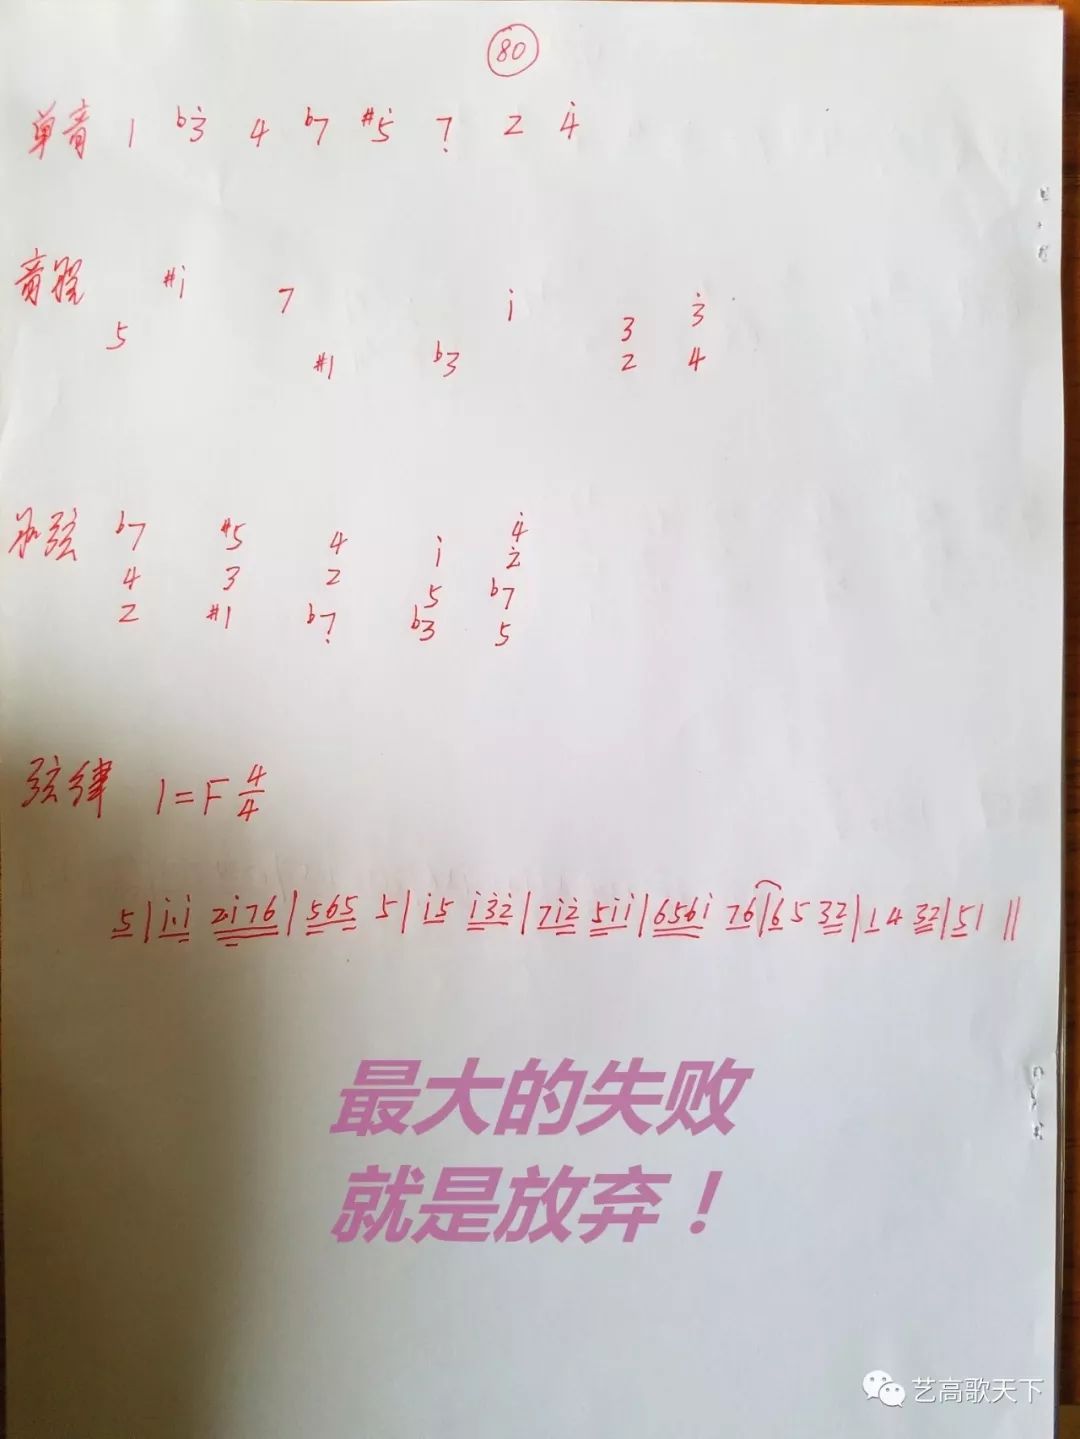 80
单音 1 b3̇ 4 b7 #5̇ 7̣ 2 4̇
音程 #1̇ 7 1̇ 3 3̇
5 #1 b3 2 4
和弦 b7 #5 4 1̇ 4̇
2̇
4 3 2 5 b7
2 #1 b7̣ b3 5
弦律 1=F 4/4
5 | 1̇·1̇ 21̇76 | 565 5 | 1̇5 1̇3̇2̇ | 71̇2̇ 51̇1̇ | 6561̇ 76 | 6 5 32 | 1 4 32 | 51 ‖
最大的失败
就是放弃！
艺高歌天下